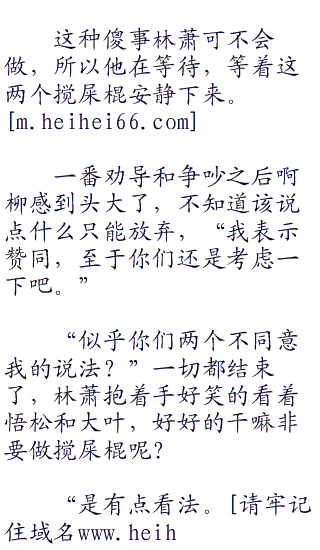 这种傻事林萧可不会
做，所以他在等待，等着这
两个搅屎棍安静下来。
[m.heihei66.com]
一番劝导和争吵之后啊
柳感到头大了，不知道该说
点什么只能放弃，“我表示
赞同，至于你们还是考虑一
下吧。”
“似乎你们两个不同意
我的说法？”一切都结束
了，林萧抱着手好笑的看着
悟松和大叶，好好的干嘛非
要做搅屎棍呢？
“是有点看法。[请牢记
住域名www.heih